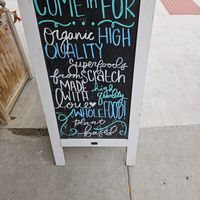 COME in FOR
Organic HIGH
QUALITY
Superfoods
from SCRATCH
MADE high
WITH quality
love
WHOLEFOOD!
plant
based